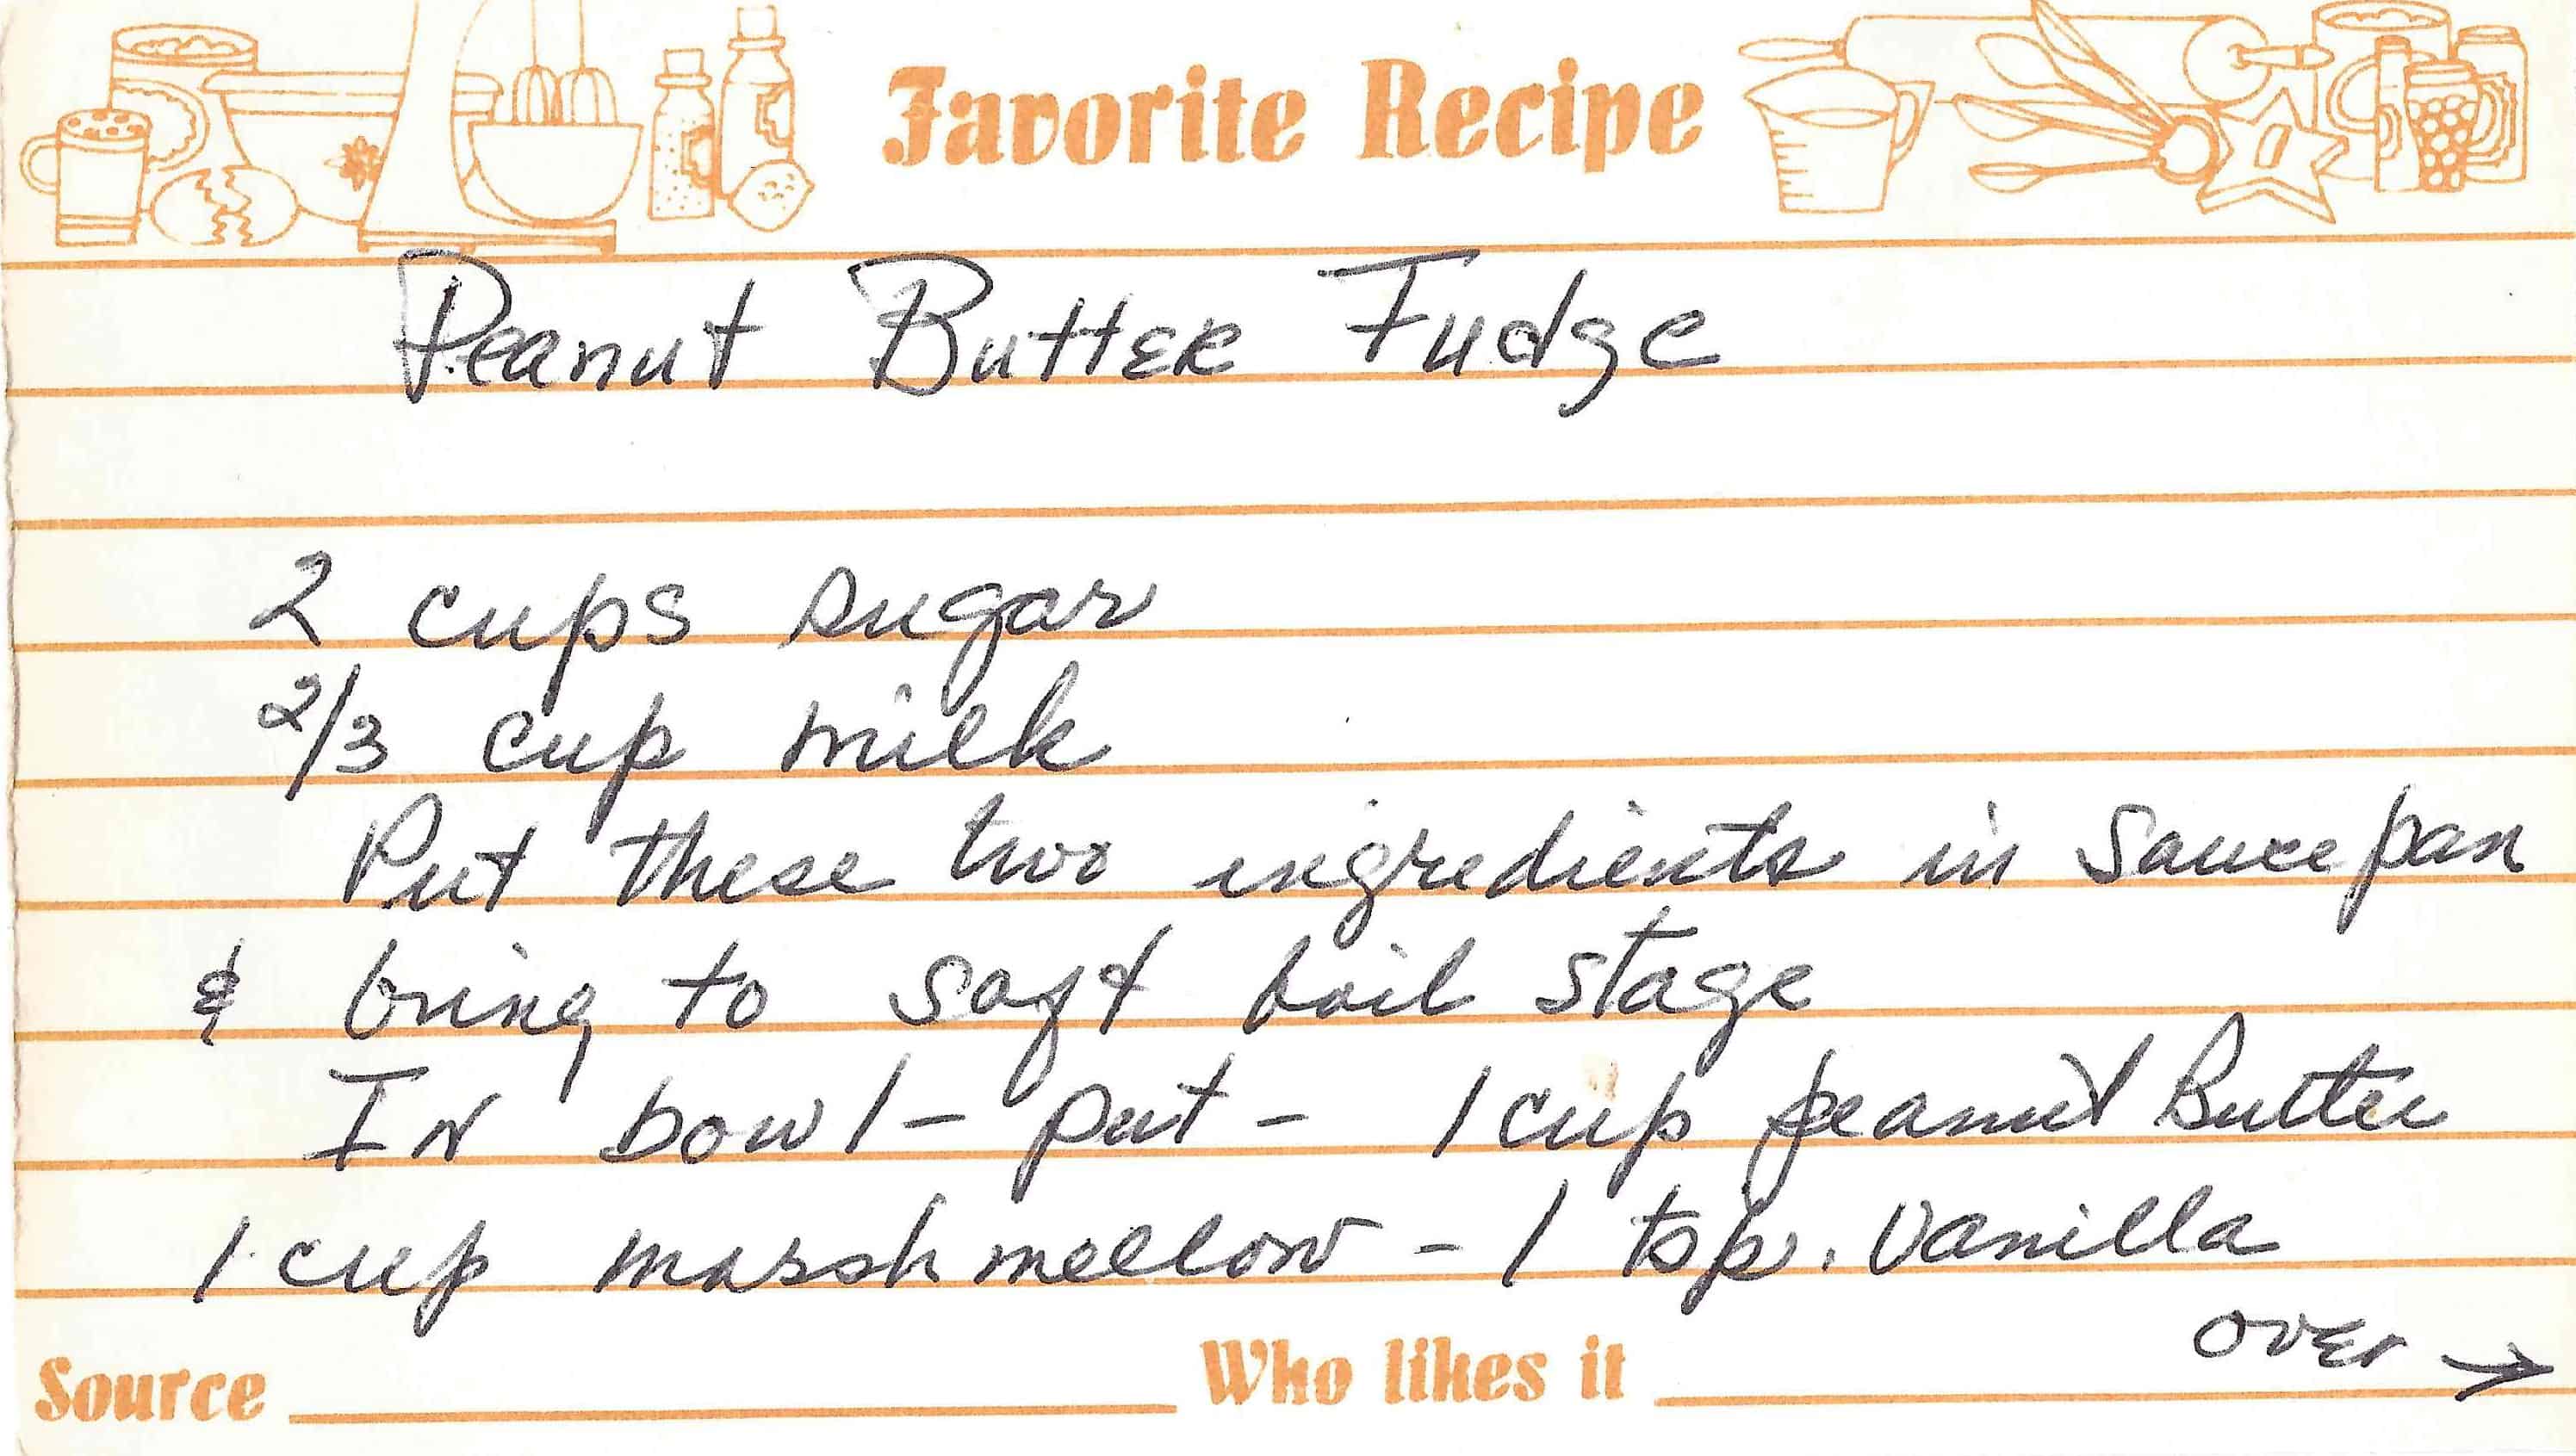 Favorite Recipe
Peanut Butter Fudge
2 cups sugar
2/3 cup milk
Put these two ingredients in saucepan
& bring to soft boil stage
In bowl - put - 1 cup peanut Butter
1 cup marshmellow - 1 tsp. vanilla
over →
Source Who likes it